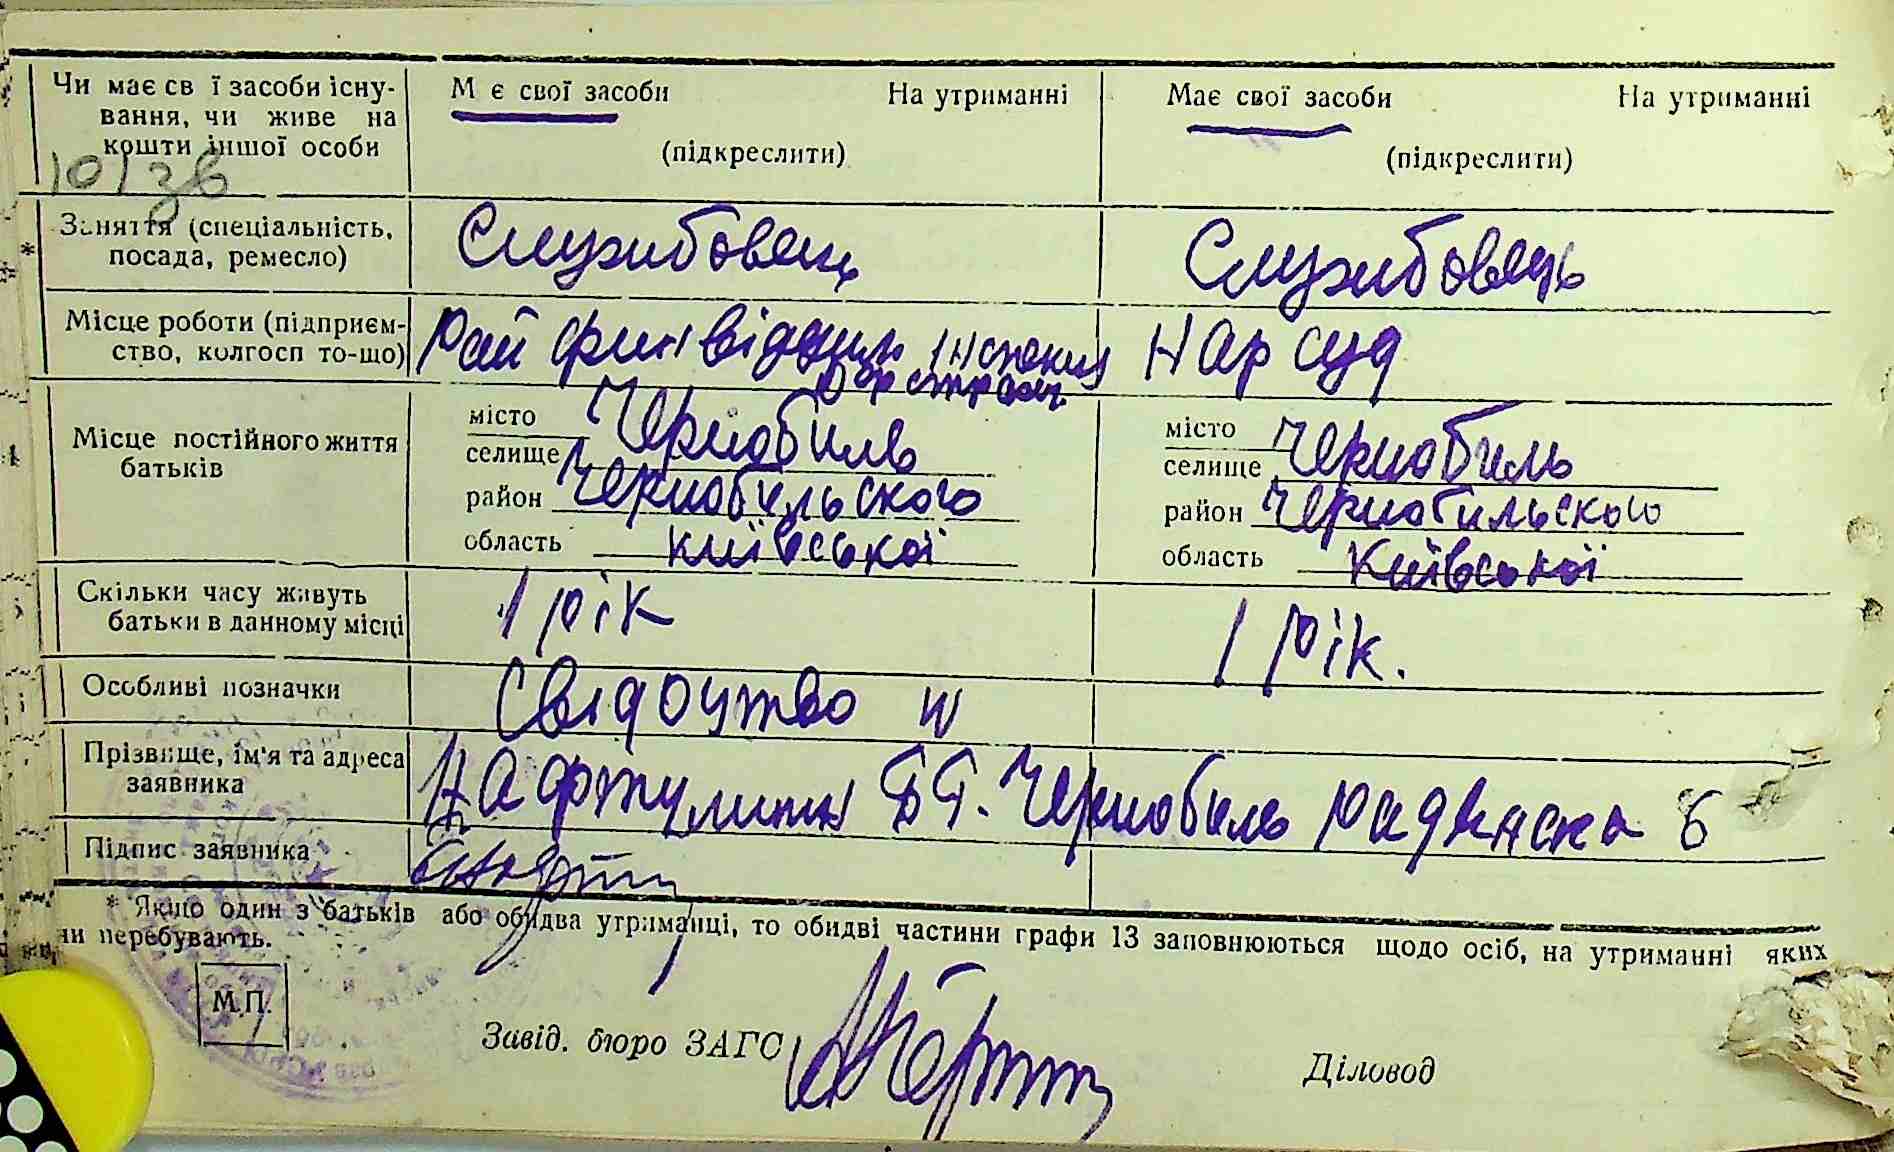 Чи має св ї засоби існу-
вання, чи живе на
кошти іншої особи
М є свої засоби На утриманні
(підкреслити)
Має свої засоби На утриманні
(підкреслити)
Заняття (спеціальність,
посада, ремесло)
Службовець
Службовець
Місце роботи (підприєм-
ство, колгосп то-що)
Рай фин відділу
Нар суд
Місце постійного життя
батьків
місто Чернобиль
селище
район Чернобильского
область Київської
місто Чернобиль
селище
район Чернобильского
область Київської
Скільки часу живуть
батьки в данному місці
1 рік
1 рік.
Особливі позначки
Свідоцтво
Прізвище, ім'я та адреса
заявника
Чернобиль 6
Підпис заявника
* Якщо один з батьків або обидва утриманці, то обидві частини графи 13 заповнюються щодо осіб, на утриманні яких
ни перебувають.
М.П.
Завід. бюро ЗАГС
Діловод